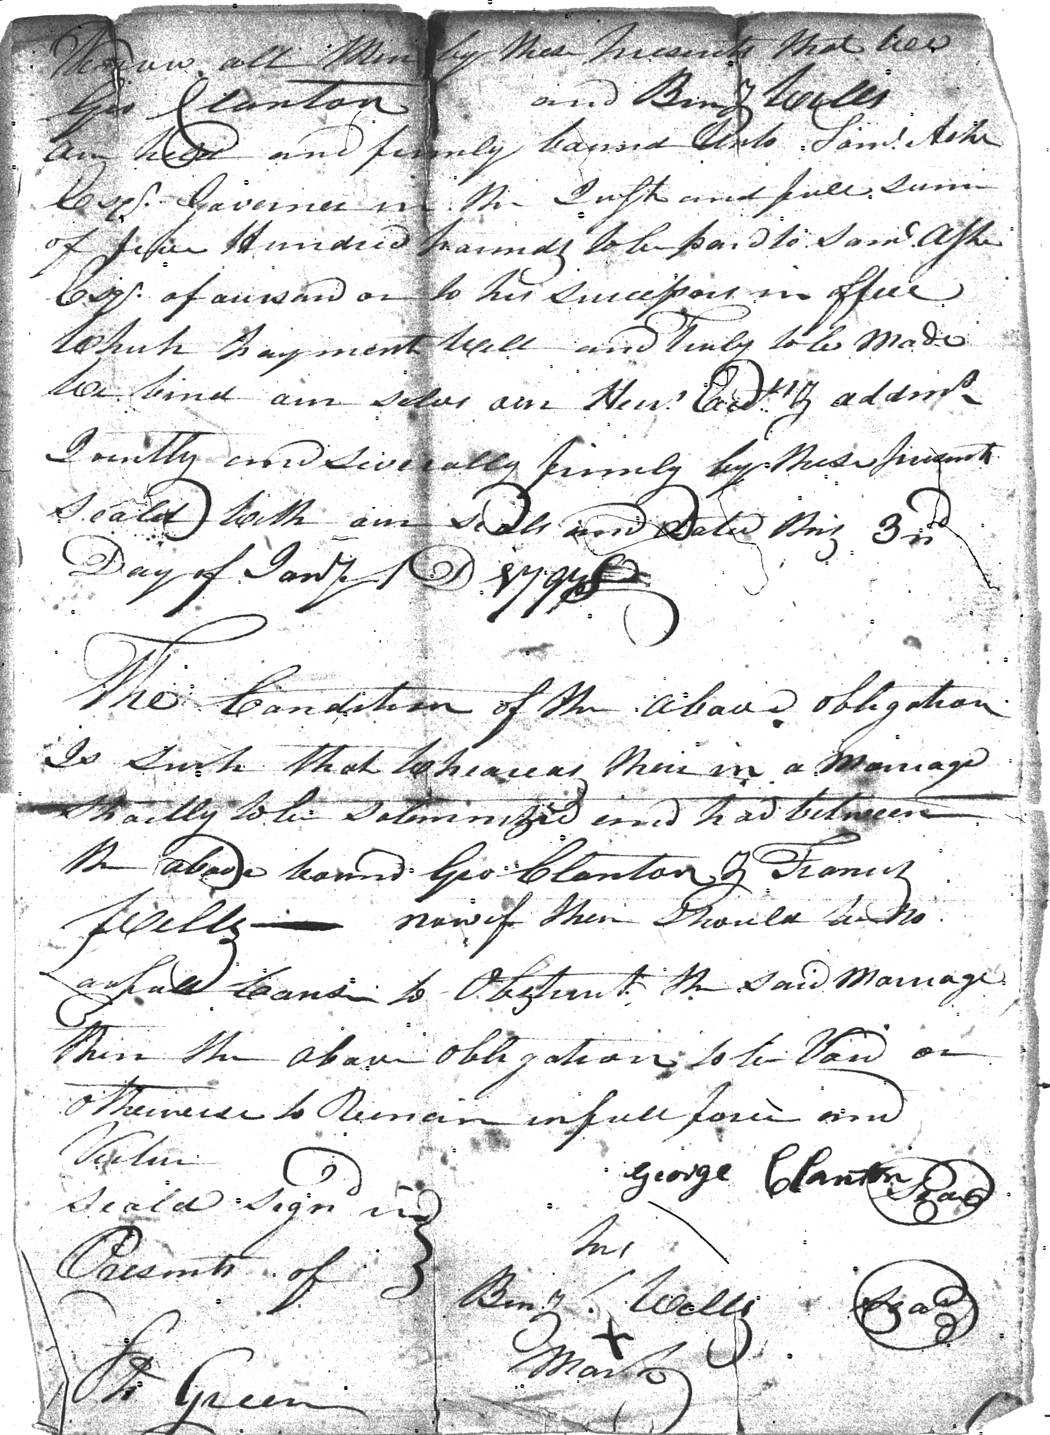 Know all Men by these presents that wee
Geo Clanton and Benj Wells
are held and firmly bound Unto Saml. Ashe
Esqr. Governer in the Just and full sum
of five Hundred pounds to be paid to Saml. Ashe
Esqr. afoursaid or to his successors in office
Which payment well and Truly to be Made
We bind our selves our Heirs addmrs
Jointly and severally firmly by these presents
Seald with our seals and Dated this 3nd
Day of Jany AD 1798
The Condition of the above obligation
Is such that wheareas there in a Marriage
shortly to be solemnized and had between
the above bound Geo Clanton & Francis
Wells now if there should be no
Lawfull Cause to Obstruct the said Marriage
then the above obligation to be Void or
otherwise to Remain in full force and
Virtue
Seald Signd in
Presents of
George Clanton Seal
his
Benj Wells Seal
X
Mark
Green